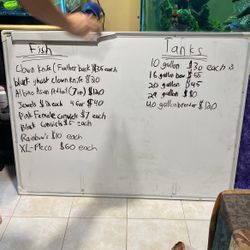 Fish
Clown Knife (Feather back) $35 each
ghost clown knife $30
Albino Asian Redtail (7in) $120
Jewels $12 each 4 for $40
Pink Female convicts $7 each
Black Convicts $5 each
Rainbow's $10 each
XL-Pleco $60 each
Tanks
10 gallon $30 each
16 gallon bow $55
20 gallon $45
29 gallon $80
40 gallon breeder $120